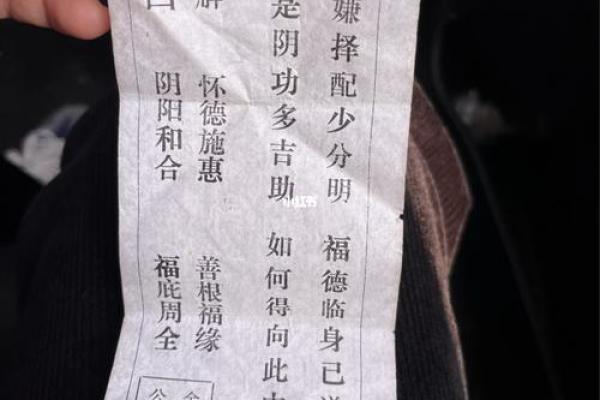 嫌择配少分明 福德临身已
是阴功多吉助 如何得向此
怀德施惠 善根福缘
阴阳和合 福庇周全
小红书